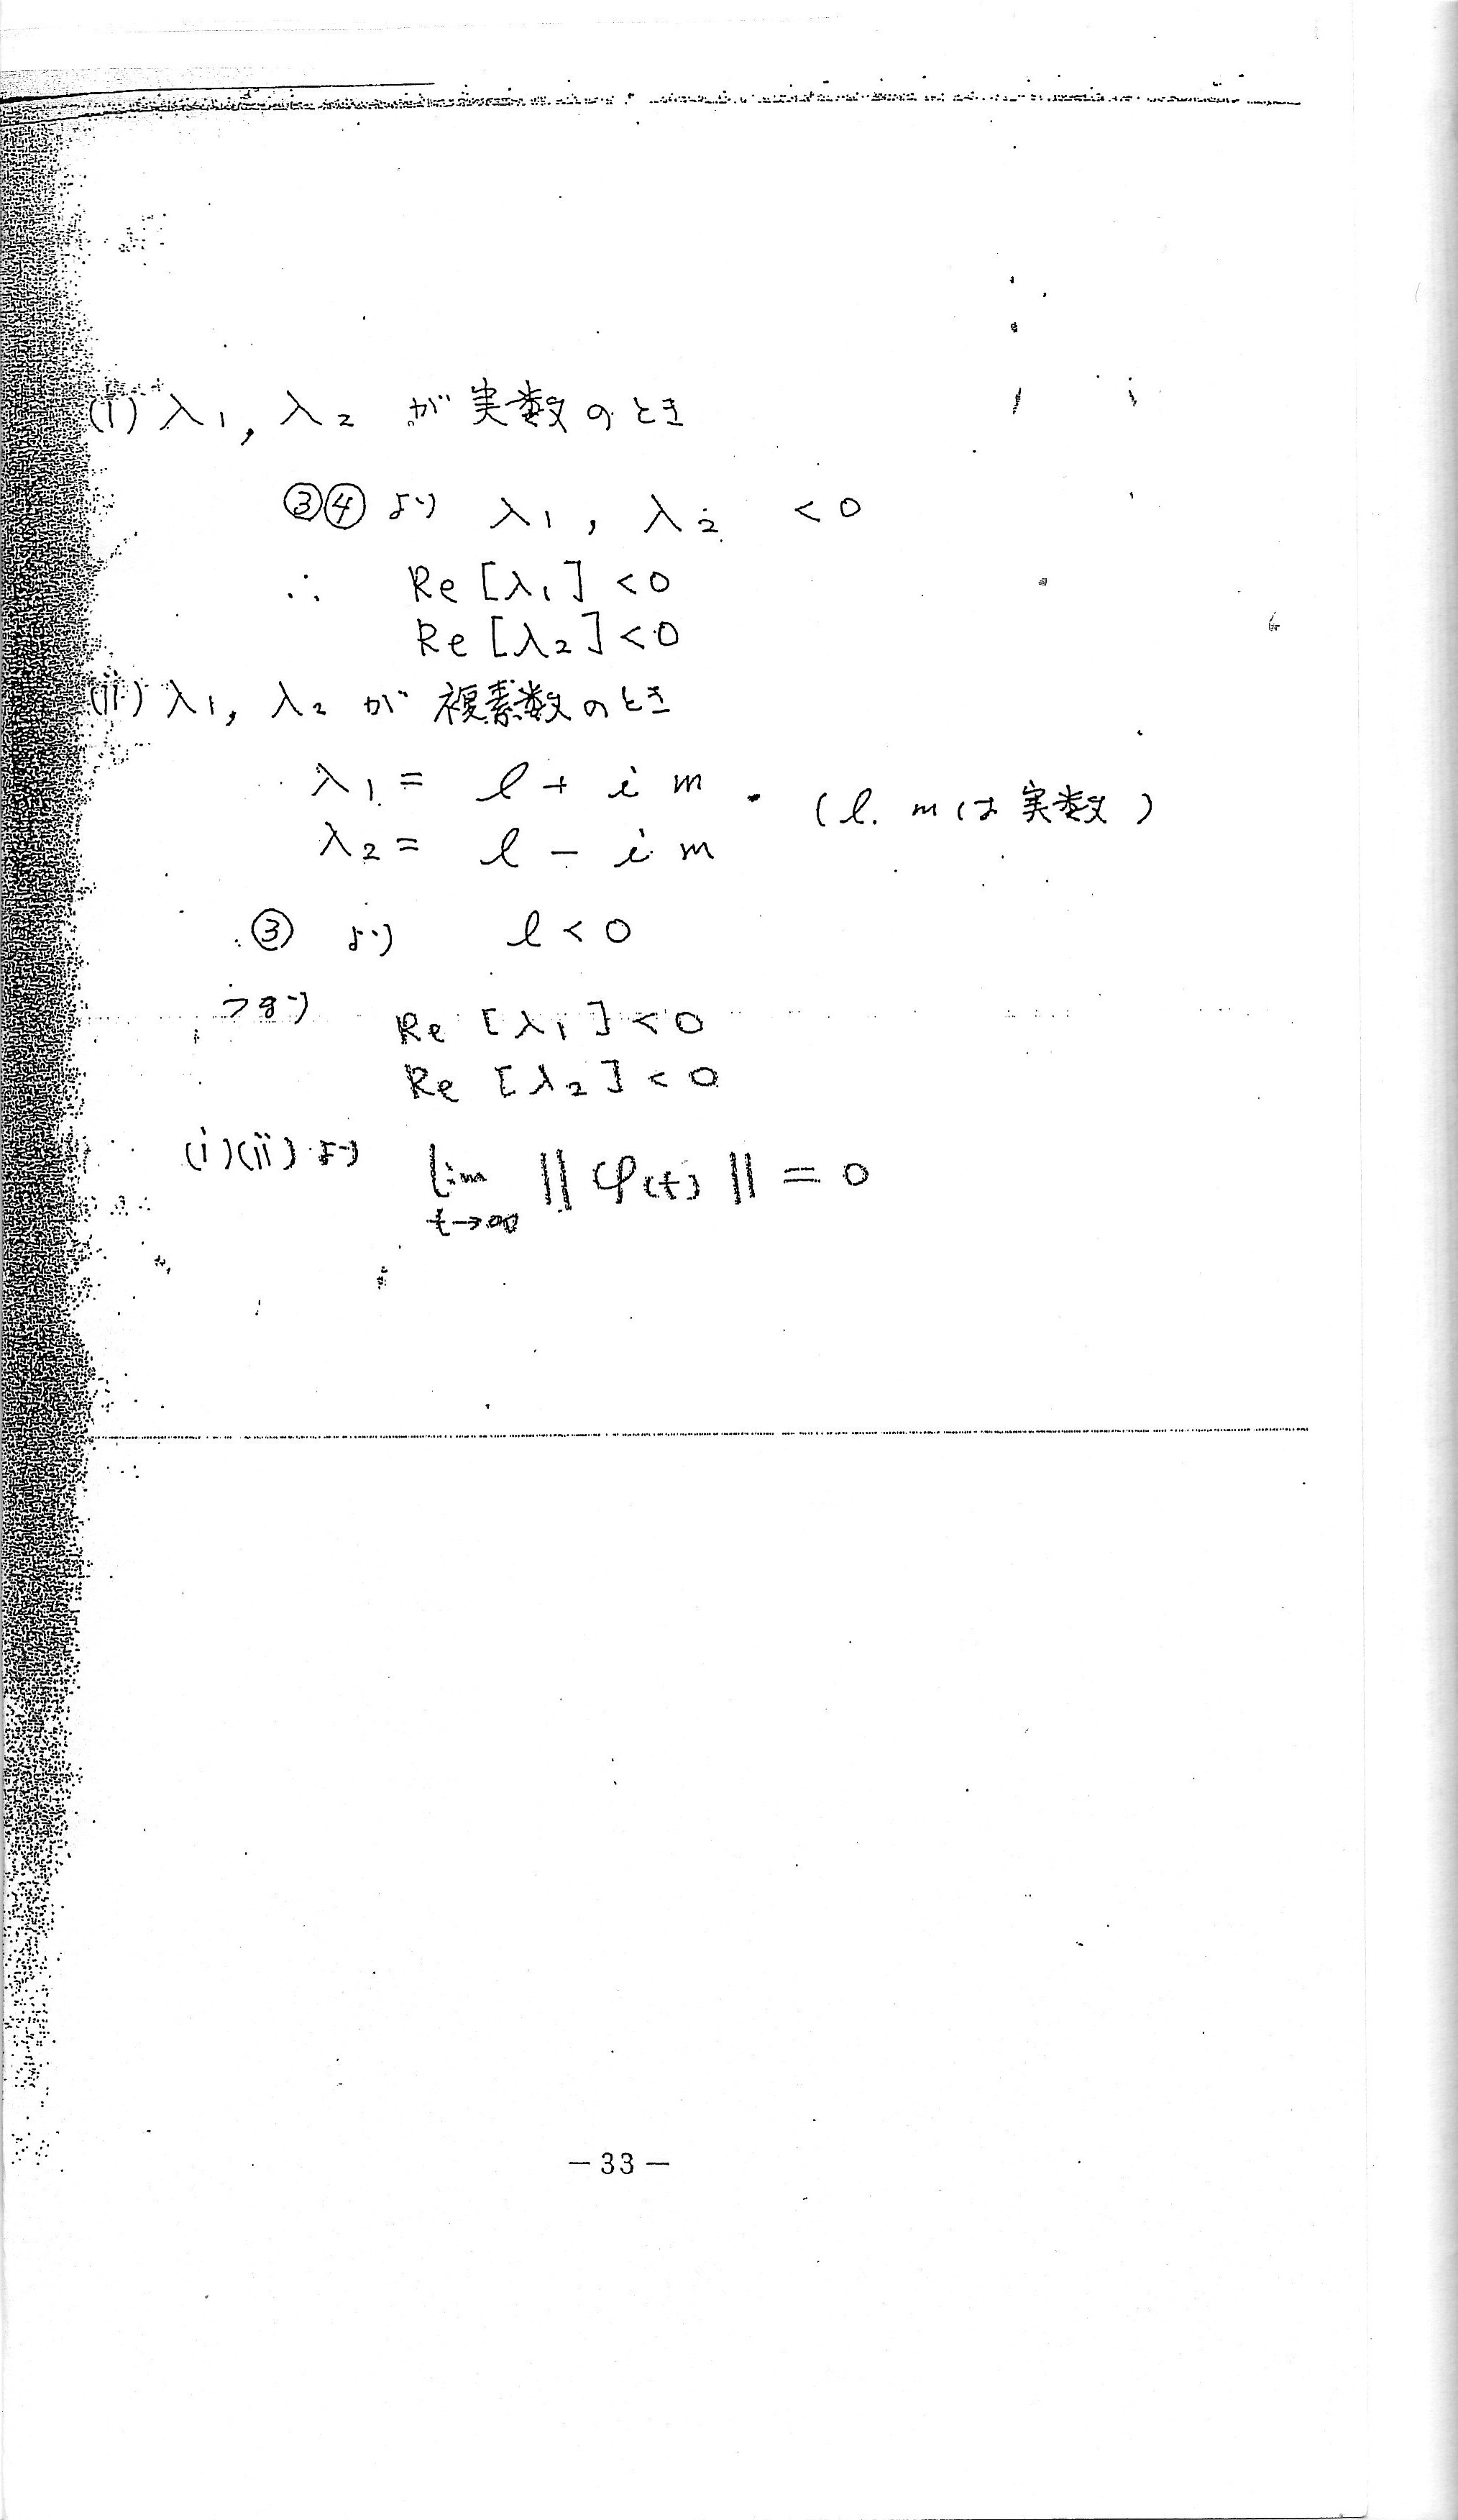 (i) λ₁, λ₂ が実数のとき
③④ より λ₁, λ₂ < 0
∴ Re [λ₁] < 0
Re [λ₂] < 0
(ii) λ₁, λ₂ が 複素数のとき
λ₁ = l + i m
(l. m は 実数)
λ₂ = l - i m
③ より l < 0
つまり Re [λ₁] < 0
Re [λ₂] < 0
(i)(ii) より lim ‖φ(t)‖ = 0
t→∞
— 33 —